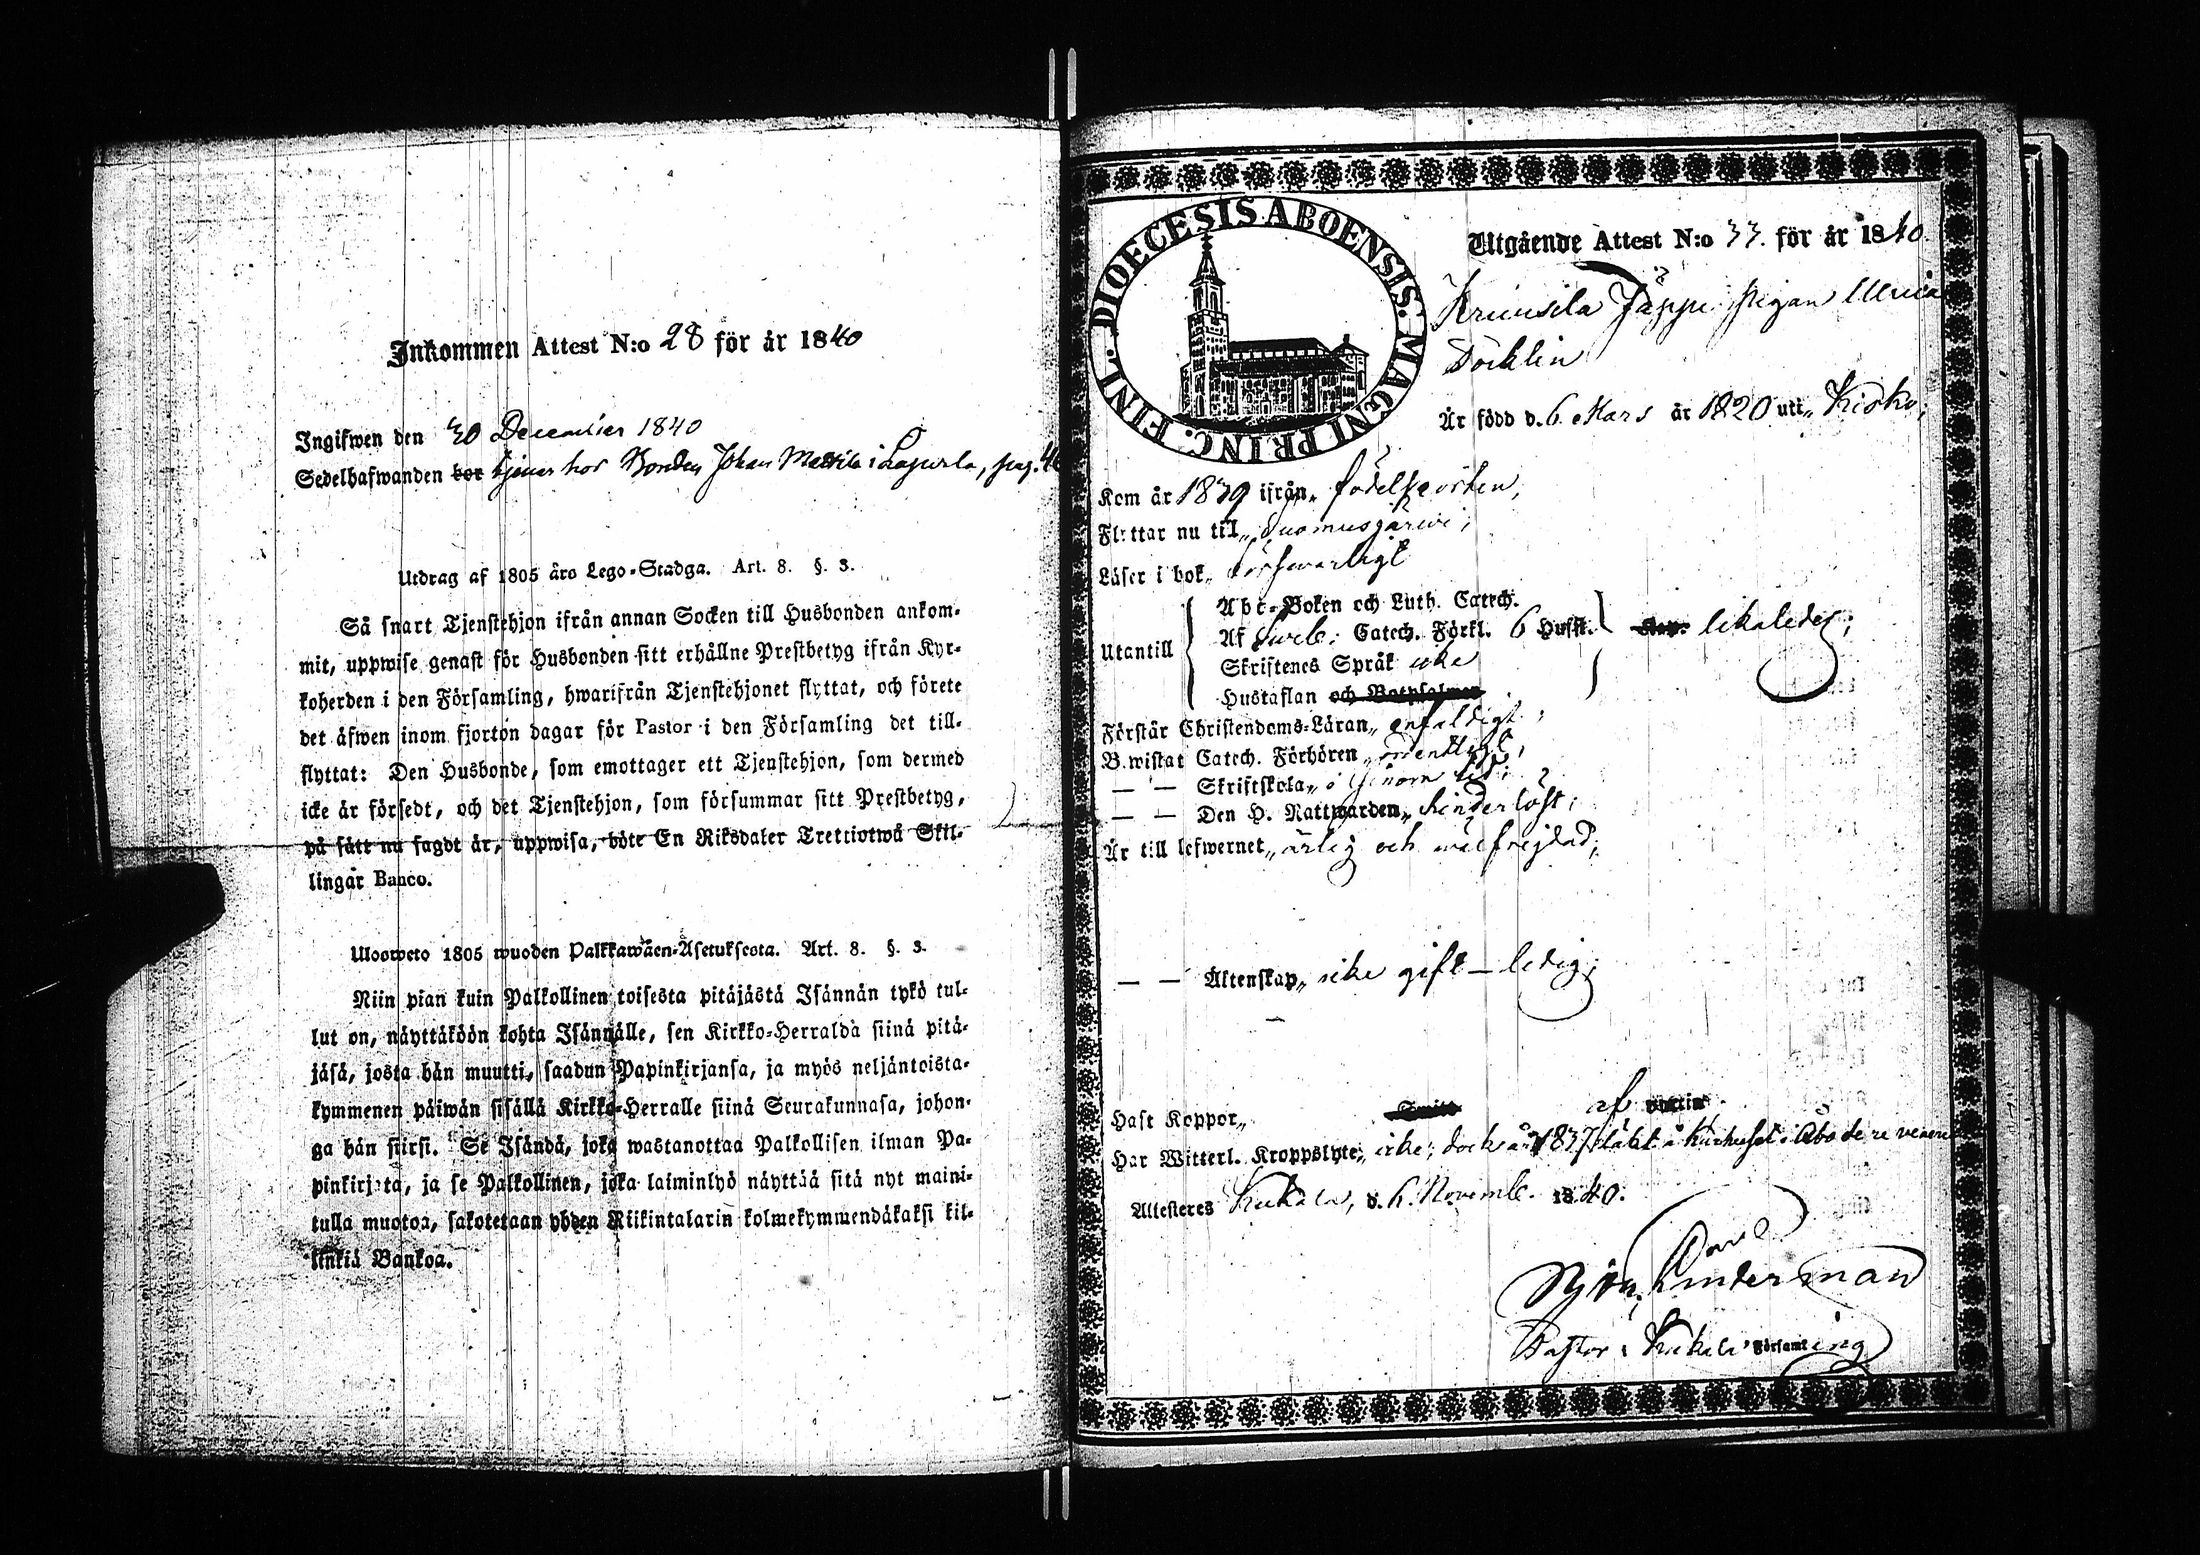 Inkommen Attest N:o 28 för år 1840
Ingifwen den 30 December 1840
Sedelhafwanden bor tjenar hos Bonden Johan Mattila i Lapurla, pag. 4
Utdrag af 1805 års Lego-Stadga. Art. 8. §. 3.
Så snart Tjenstehjon ifrån annan Socken till Husbonden ankom-
mit, uppwise genast för Husbonden sitt erhållne Prestbetyg ifrån Kyr-
koherden i den Församling, hwarifrån Tjenstehjonet flyttat, och förete
det äfwen inom fjorton dagar för Pastor i den Församling det till-
flyttat: Den Husbonde, som emottager ett Tjenstehjon, som dermed
icke är försedt, och det Tjenstehjon, som försummar sitt Prestbetyg,
på sätt nu sagdt är, uppwisa, böte En Riksdaler Trettiotwå Skil-
lingar Banco.
Uloosweto 1805 wuoden Palkkawäen-Asetuksesta. Art. 8. §. 3.
Niin pian kuin Palkollinen toisesta pitäjästä Isännän tykö tul-
lut on, näyttäköön kohta Isännälle, sen Kirkko-Herralda siinä pitä-
jäsä, josta hän muutti, saadun Papinkirjansa, ja myös neljäntoista-
kymmenen päiwän sisällä Kirkko-Herralle siinä Seurakunnasa, johon-
ga hän siirsi. Se Isändä, joka wastanottaa Palkollisen ilman Pa-
pinkirjata, ja se Palkollinen, joka laiminlyö näyttää sitä nyt maini-
tulla muotoa, sakotetaan yhden Riikintalarin kolmekymmendäkaksi kil-
linkiä Bankoa.
DIOECESIS ABOENSIS. MAGNI PRINC. FINL.
Utgående Attest N:o 33. för år 1840.
Jäppi Pigan Ulrica
Döcklin
Är född d. 6 Mars år 1820 uti Kisko;
Kom år 1839 ifrån födelseorten,
Flyttar nu till Suomusjärwi;
Läser i bok försvarligt
Utantill
Abc-Boken och Luth. Catech.
Af Sveb. Catech. Förkl. 6 Hufst. likaledes;
Skriftenes Språk icke
Hustaflan och Botpsalmen
Förstår Christendoms-Läran enfaldigt;
Bewistat Catech. Förhören ordentligt;
— — Skriftskola
— — Den H. Nattwarden hinderlöst;
Är till lefwernet ärlig och wälfrejdad;
— — Äktenskap icke gift – ledig;
Haft Koppor af
Har Witterl. Kroppslyte icke; dock år 1837 läkt å Kurhuset i Åbo
Attesteres Kiikala, d. 6. Novemb. 1840.
Linderman
Pastor i Kiikala Församling